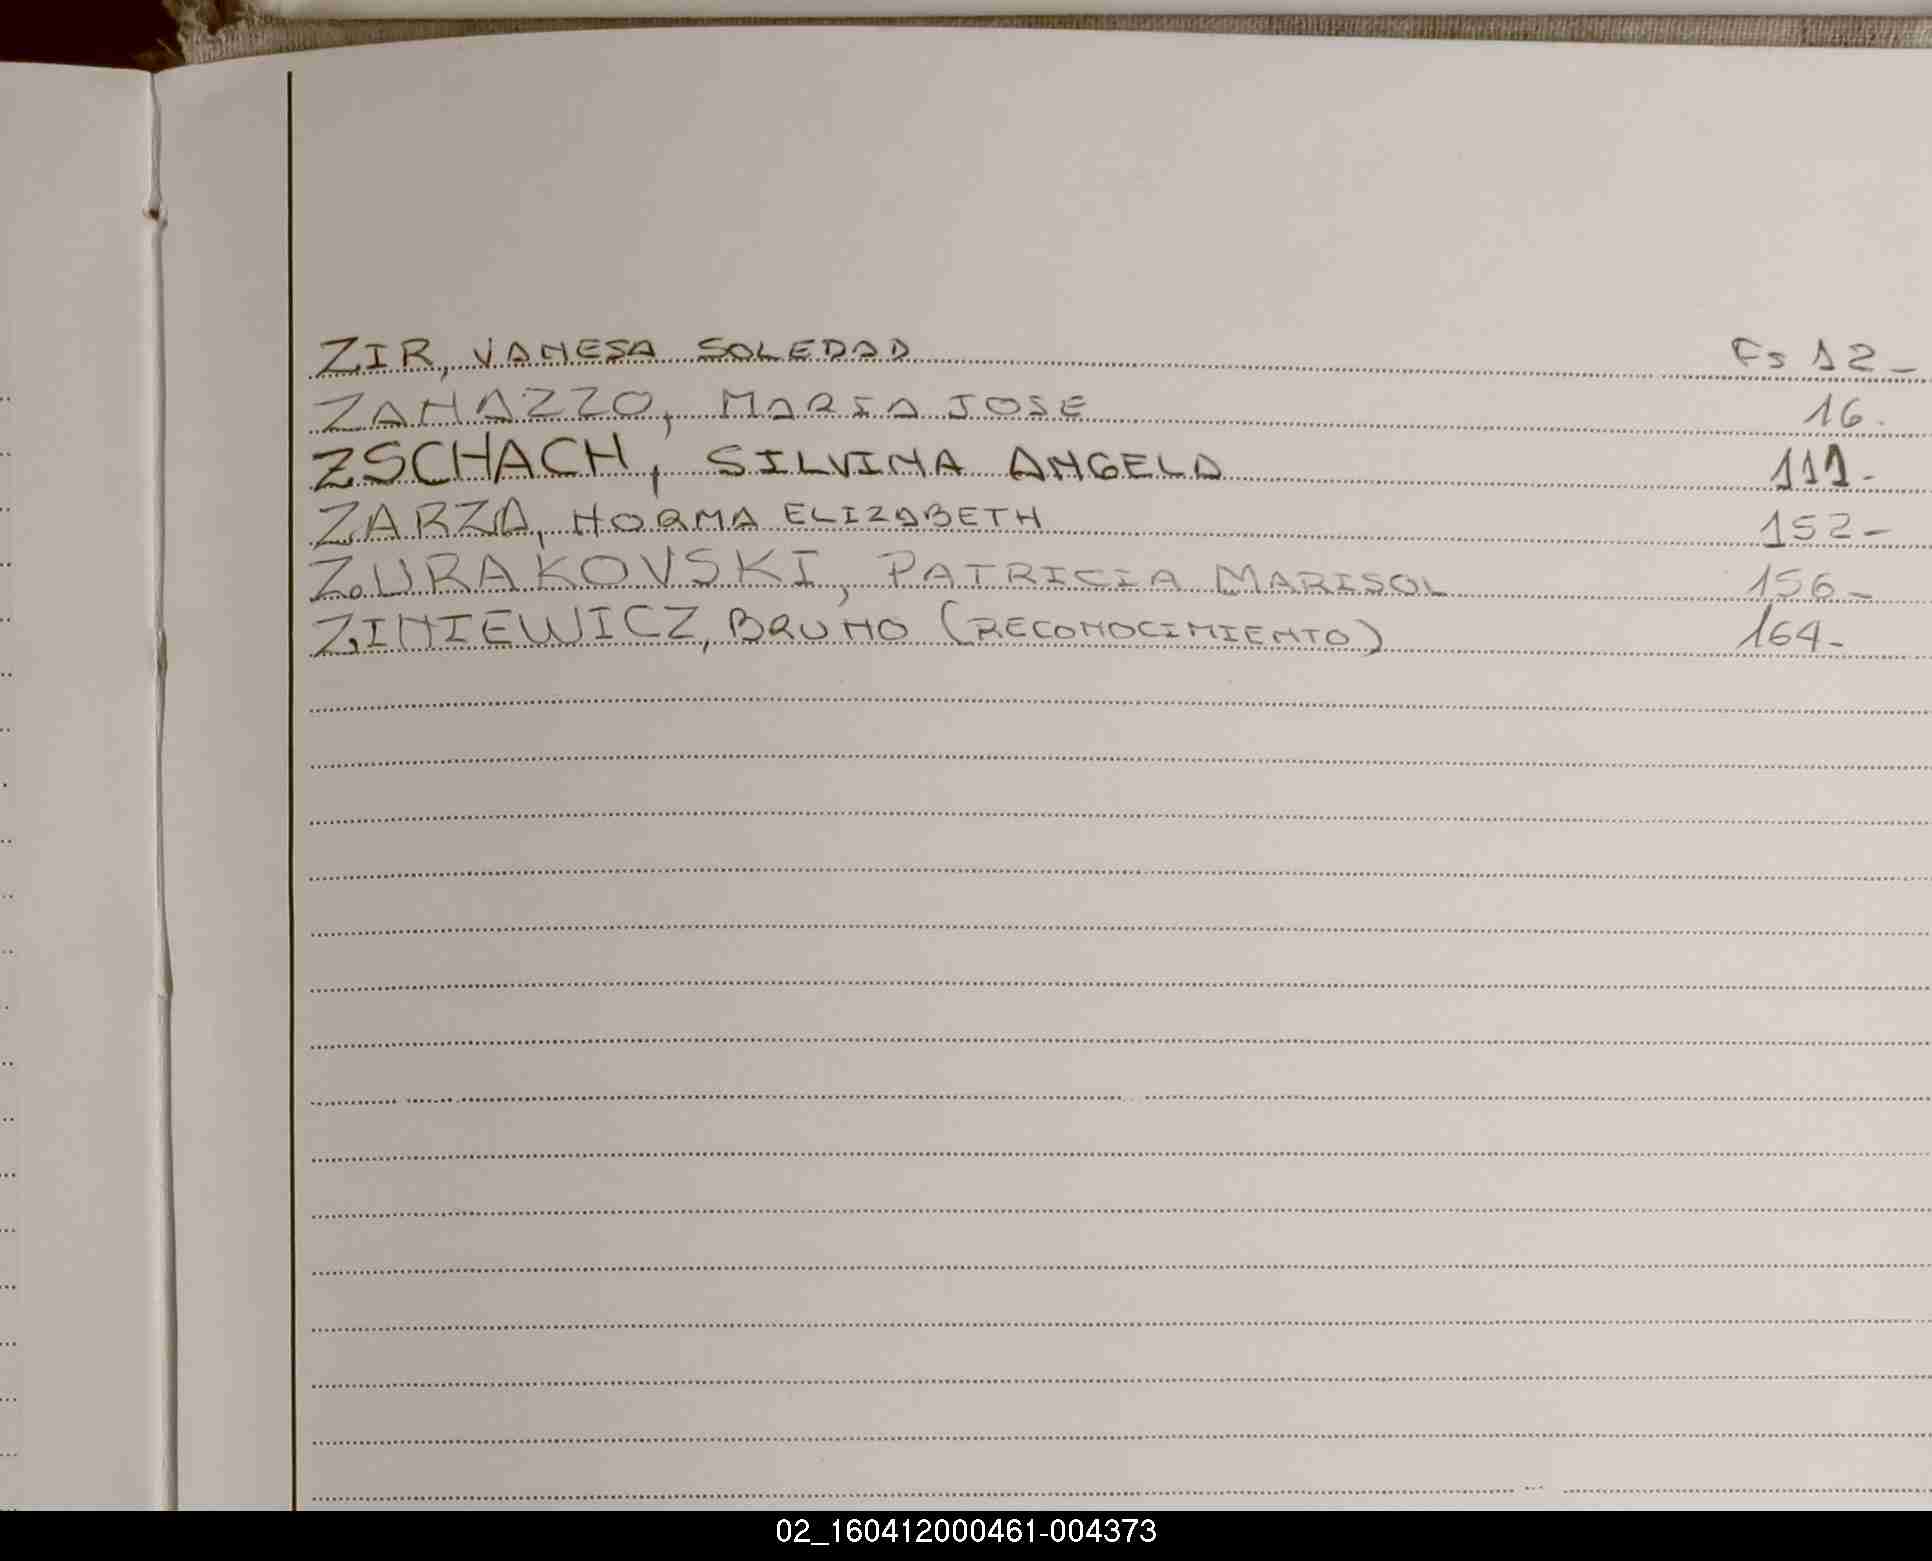 ZIR, VANESA SOLEDAD Fs 12_
ZANAZZO, MARIA JOSE 16.
ZSCHACH, SILVINA ANGELA 111-
ZARZA, NORMA ELIZABETH 152-
ZURAKOVSKI, PATRICIA MARISOL 156_
ZINIEWICZ, BRUNO (RECONOCIMIENTO) 164-
02_160412000461-004373